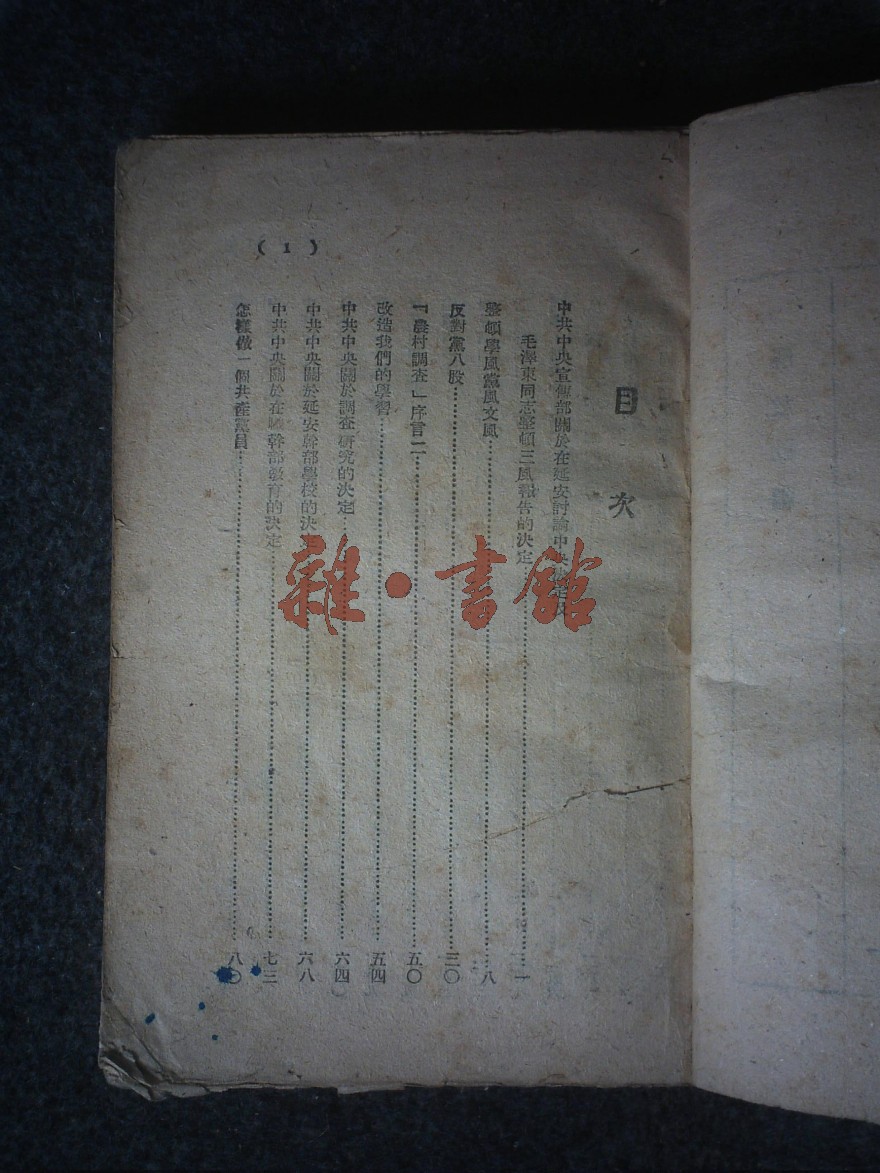 目次
中共中央宣傳部關於在延安討論中央決定及
毛澤東同志整頓三風報告的決定……一
整頓學風黨風文風……八
反對黨八股……三〇
『農村調查』序言二……五〇
改造我們的學習……五四
中共中央關於調查研究的決定……六四
中共中央關於延安幹部學校的決定……六八
中共中央關於在職幹部教育的決定……七三
怎樣做一個共產黨員……八〇
(1)
雜·書館